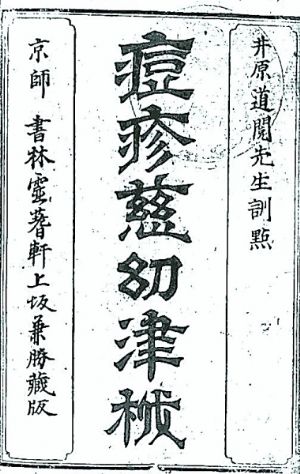 井原道閲先生訓點
痘疹慈幼津栰
京師 書林霊蓍軒上坂兼勝藏版